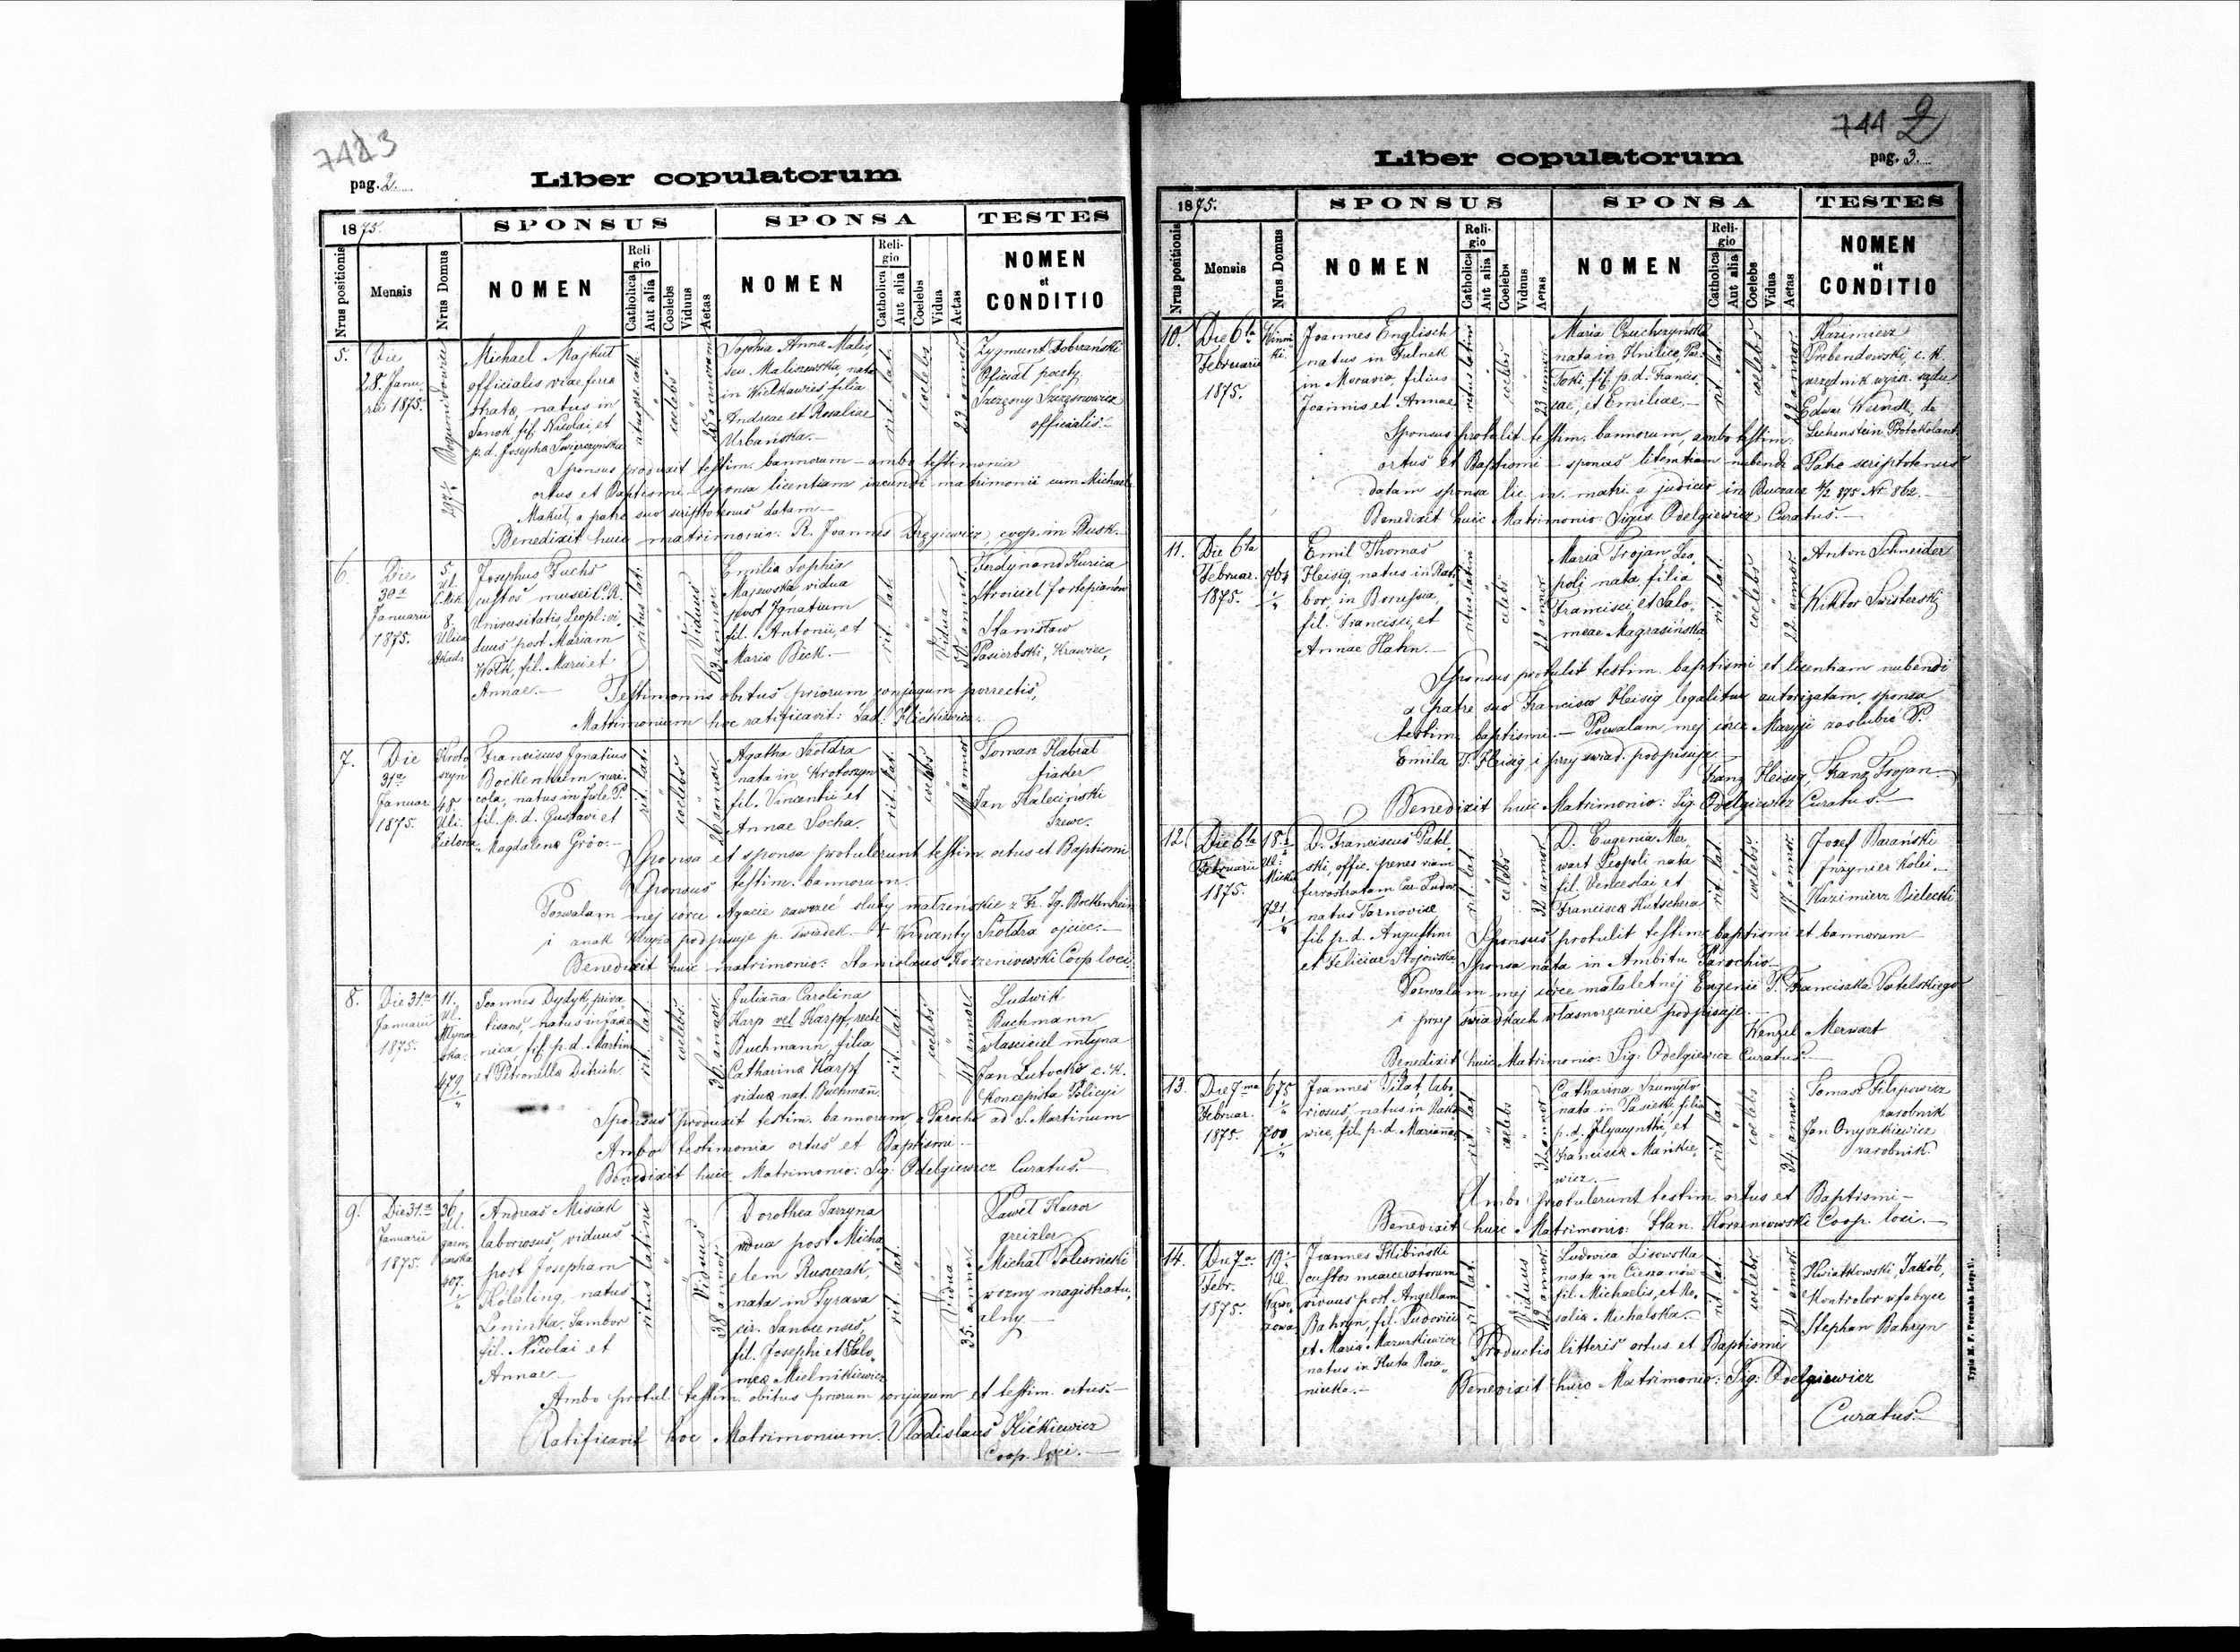 7443
pag. 2.
Liber copulatorum
1875.
SPONSUS
SPONSA
TESTES
Nrus positionis
Mensis
Nrus Domus
NOMEN
Religio
Catholica
Aut alia
Coelebs
Viduus
Aetas
NOMEN
Religio
Catholica
Aut alia
Coelebs
Vidua
Aetas
NOMEN
et
CONDITIO
5.
Die
28. Janu
rii 1875.
Michael Majkut
officialis viae ferro
stratae, natus in
Sanok, fil. Nicolai, et
p. d. Josepha Swierczynska
coelebs
25 annorum
Sophia Anna Malis,
seu Maliszewska, nata
in Wielkawies, filia
Andreae et Rosaliae
Urbańska.—
rit. lat.
coelebs
22 annor.
Zygmunt Dobrzański
Oficiał poczty
Szczęsny
officialis.—
Sponsus produxit testim. bannorum — ambo testimonia
ortus et Baptismi — sponsa licentiam ineundi matrimonii cum Michaele
Makut, a patre suo scriptotenus datam —
Benedixit huic matrimonio: R. Joannes Dręgiewicz, coop. in Busk.—
6.
Die
30a
Januarii
1875.
5.
Ul.
8.
Ulica
Akad.
Josephus Fuchs
custos musei C. R.
Universitatis Leopl: vi,
duus post Mariam
Wołk, fil. Marci et
Annae.—
ritus lat.
Viduus
63 annor.
Emilia Sophia
Majewska, vidua
post Ignatium
fil. Antonii, et
Maria Beck.—
rit. lat.
Vidua
50 annor.
Ferdynand Kurica
Stroiciel fortepianów
Stanisław
Pasierbski, Krawiec,
Testimoniis obitus priorum conjugum porrectis,
Matrimonium hoc ratificavit: Lad: Kickiewicz.
7.
Die
31a
Januar.
1875.
Kroto
szyn
48.
Uli.
Zielona
Franciscus Ignatius
Bockenheim, ruri,
cola, natus in
fil. p. d. Gustavi et
Magdalena Gróo.—
rit. lat.
coelebs
26 annor.
Agatha Szołdra
nata in Krotoszyn
fil. Vincentii et
Annae Socha.
rit. lat.
coelebs
Tomasz Habrat
fiaker
Jan Kaleciński
Szewc.
Sponsa et sponsa protulerunt testim. ortus et Baptismi
Sponsus testim. bannorum.
Pozwalam mej córce Agacie zawrzeć śluby małżeńskie z Fr. Ig. Bockenheim
i znak krzyża podpisuje p. świadek.— + Wincenty Szołdra ojciec.—
Benedixit huic matrimonio: Stanislaus Korzeniowski Coop. loci.
8.
Die 31a
Januarii
1875.
11.
Ul.
Młynar
ska.
479.
Joannes Dydyk, priva
tisans, natus in Jasie
nica, fil. p. d. Martini
et Petronella Ditrich
rit. lat.
coelebs
36. annor.
Julianna Carolina
Karp vel Karpf, recte
Buchmann, filia
Catharina Karpf
vidua nat. Buchmann.
rit. lat.
coelebs
41 annor.
Ludwik
Buchmann
właściciel młyna
Jan Lutocki c. k.
Koncepista Policyi
Sponsus produxit testim. bannorum, a Parocho ad S. Martinum
Ambo testimonia ortus et Baptismi.—
Benedixit huic Matrimonio: Sig. Odelgiewicz Curatus.—
9.
Die 31a
Januarii
1875.
36.
Ul.
garn,
carska
407.
Andreas Misiak
laboriosus, viduus
post Josepham
Kölbling, natus
Leninka, Sambor
fil. Nicolai et
Annae —
ritus latini
Viduus
38 annor.
Dorothea Jarzyna
vidua post Micha
elem Ruszczak,
nata in Tyrawa
cir. Sanocensis,
fil. Josephi et Salo,
mea Mielnikiewicz
rit. lat.
Vidua
35. annor.
Paweł Kaczor
greizler
Michał Polesnicki
woźny magistratu,
alny —
Ambo protul. testim. obitus priorum conjugum et testim. ortus.—
Ratificavit hoc Matrimonium: Vladislaus Kickiewicz
Coop. loci.—
744 2
pag. 3.
Liber copulatorum
1875.
SPONSUS
SPONSA
TESTES
Nrus positionis
Mensis
Nrus Domus
NOMEN
Religio
Catholica
Aut alia
Coelebs
Viduus
Aetas
NOMEN
Religio
Catholica
Aut alia
Coelebs
Vidua
Aetas
NOMEN
et
CONDITIO
10.
Die 6ta
Februarii
1875.
Winni
ki.
Joannes Englisch
natus in Fulnek
in Moravia, filius
Joannis et Annae
ritus latini
coelebs
23 annor.
Maria Czuchrzyńska
nata in Knilice, Par.
Toki, fil. p. d. Francis,
cae, et Emiliae.—
rit. lat.
coelebs
22 annor.
Kazimierz
Prebendowski c. k.
urzędnik wyższ. sądu
Edwar Werndl, de
Lichenstein Protokolant.
Sponsus protulit testim. bannorum, ambo testim.
ortus et Baptismi — sponsus licentiam nubendi a Patre scriptotenus
datam sponsa lic. in. matri. a judicio in Buczacz 4/2 875 Nr. 862.
Benedixit huic Matrimonio: Sigis. Odelgiewicz Curatus.—
11.
Die 6ta
Februar.
1875.
Emil Thomas
Heisig, natus in Rati,
bor, in Borussia,
fil. Francisci, et
Annae Hahn.—
ritus latini
celebs
22 annor.
Maria Trojan Leo,
poli nata, filia
Francisci, et Salo,
meae Magrasińska
rit. lat.
coelebs
22. annor.
Anton Schneider
Wiktor Swisterski
Sponsus protulit testim. baptismi et licentiam nubendi
a patre suo Francisco Heisig legalitur autorizatam, sponsa
testim. baptismi.— Pozwalam mej córce Maryji zaslubić P.
Emila T. Heisig i przy świad. podpisuje.—
Franz Heisig, Franz Trojan.—
Benedixit huic Matrimonio: Sig. Odelgiewicz Curatus.—
12.
Die 6ta
Februarii
1875.
18.
Ul:
Mickie
721.
D. Franciscus Patel,
ski, offic. penes viam
ferrostratam Car. Ludov.
natus Tarnoviae
fil. p. d. Augustini
et Feliciae Stojowska
rit. lat.
celebs
32 annor.
D. Eugenia Mer,
wart Leopoli nata
fil. Venceslai et
Francisca Kutschera
rit. lat.
coelebs
17 annor.
Jozef Barański
Inzynier Kolei —
Kazimierz Bielecki
Sponsus protulit testim. baptismi et bannorum —
Sponsa nata in Ambitu Parochio —
Pozwalam mej córce małaletnéj Eugenii P. Franciszka Patelskiego
i przy świadkach własnoręcznie podpisuje.—
Wenzel Merwart
Benedixit huic Matrimonio: Sig. Odelgiewicz Curatus.—
13.
Die 7ma
Februar.
1875.
675
700
Joannes Piłat, labo,
riosus, natus in Rako
wice, fil. p. d. Marianna
rit. lat.
coelebs
Catharina Szumyło
nata in Pasieki, filia
p. d. Hyacynthi, et
Francisca Mańkie,
wicz.—
rit. lat
coelebs
34. annor.
Tomasz Filipowicz
zarobnik
Jan Onyszkiewicz
zarobnik
Ambo protulerunt testim. ortus et Baptismi —
Benedixit huic Matrimonio: Stan. Korzeniowski Coop. loci.—
14.
Die 7a
Febr.
1875.
19.
Ul.
Wąwo
zowa
Joannes Skibiński
custos incarceratorum
viduus post Angellam
Bahryn, fil. Ludovici
et Maria Mazurkiewicz
natus in Huta Róża
niecka.—
rit. lat.
Viduus
42 annor.
Ludovica Lisowska
nata in Cieszanow
fil. Michaelis, et Ro,
salia Michalska.—
rit. lat.
coelebs.
24 annor.
Kwiatkowski, Jakób,
Kontrolor w fabryce
Stephan Bahryn
Productis litteris ortus et Baptismi
Benedixit huic Matrimonio: Sig: Odelgiewicz
Curatus.—
Typis M. F. Poremba Leopoli.